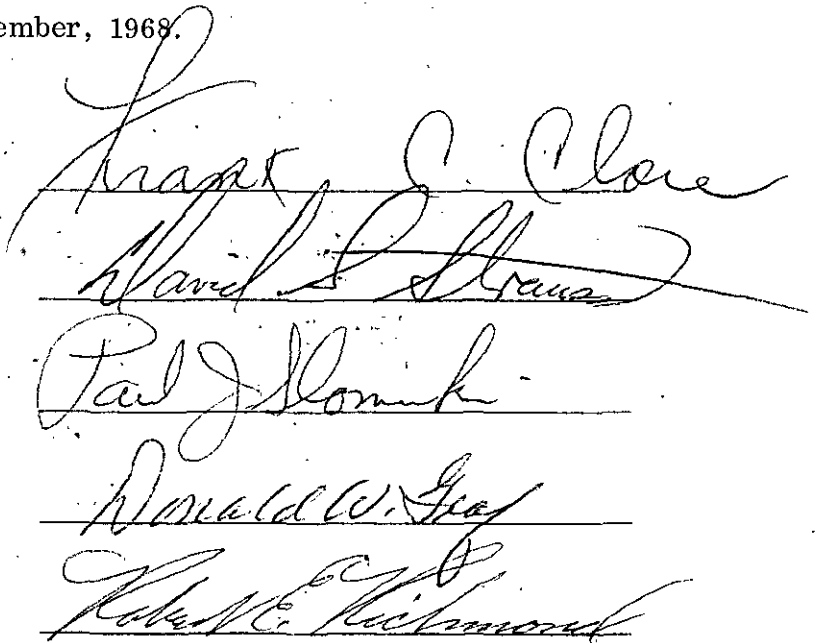 ember, 1968.
Frank C. Clore
David S. Strauss
Paul J. Slominski
Donald W. Gray
Robert E. Richmond